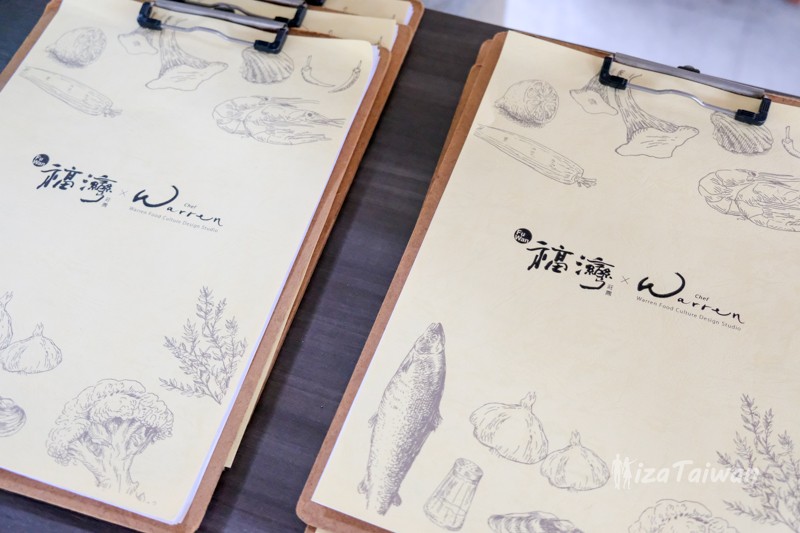 福灣 × Chef Warren
Warren Food Culture Design Studio
Fu Wan
福灣 莊園 × Chef Warren
Warren Food Culture Design Studio
izaTaiwan